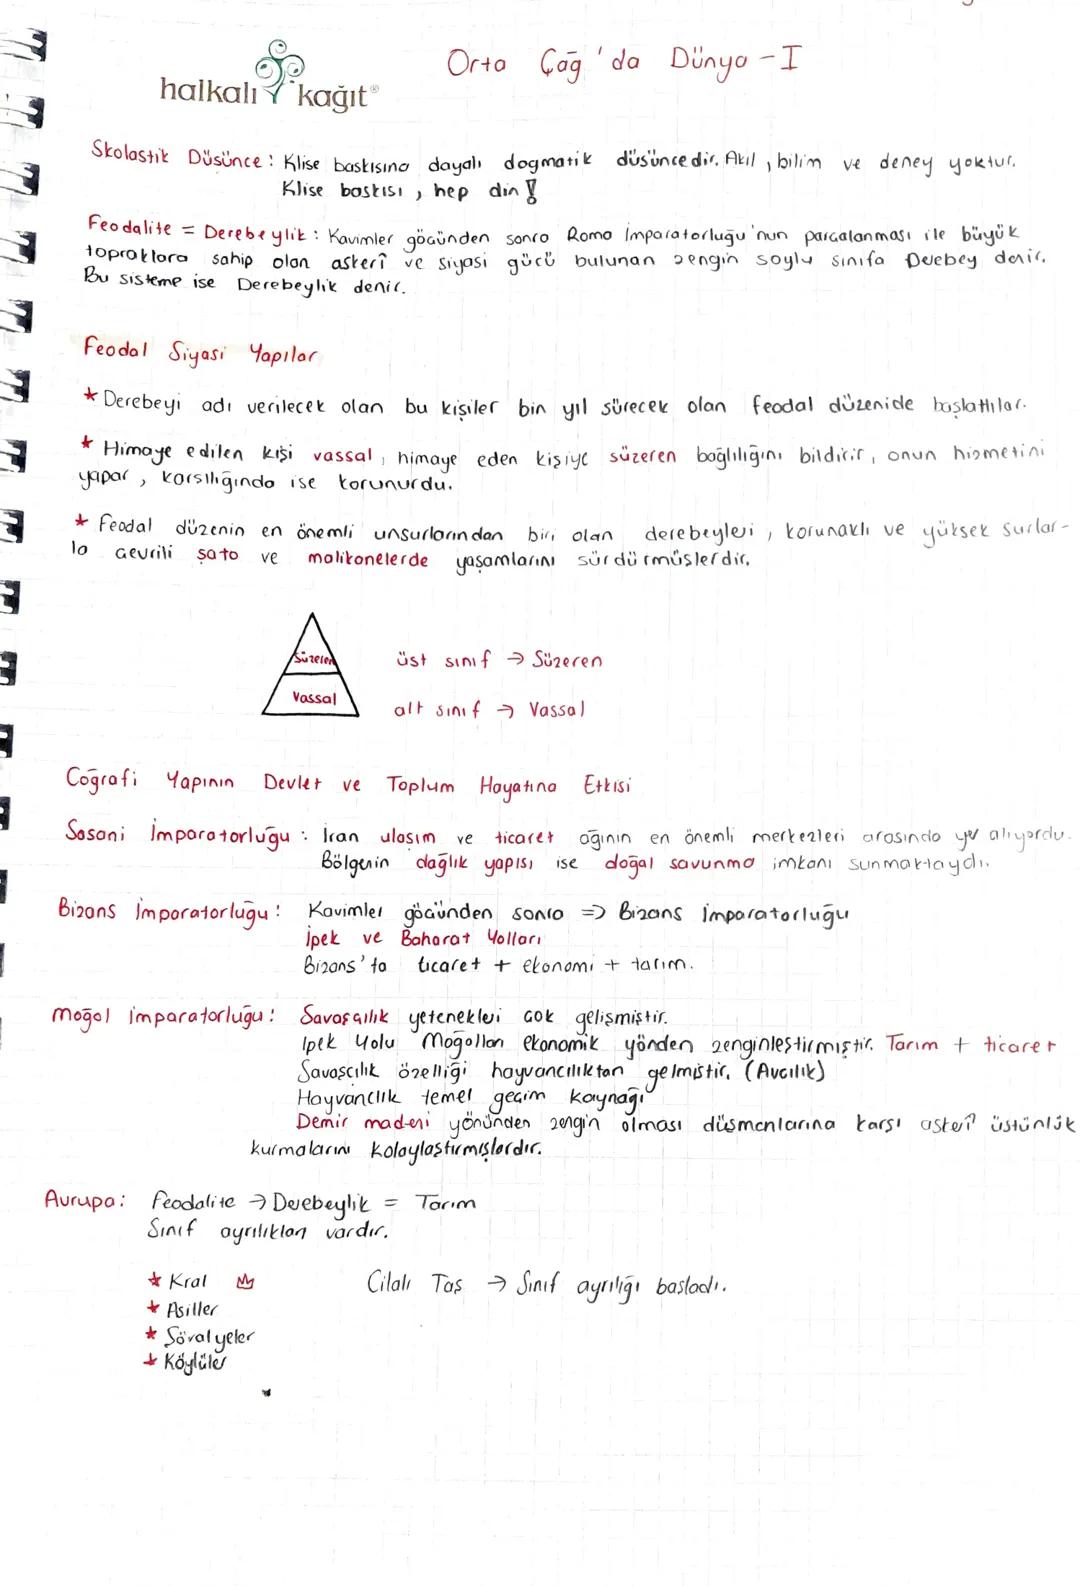 Orta Çağ'da Dünya - I
halkalı kağıt®
Skolastik Düşünce : Klise baskısına dayalı dogmatik düşüncedir. Akıl, bilim ve deney yoktur.
Klise baskısı, hep din!
Feodalite = Derebeylik : Kavimler göçünden sonra Roma İmparatorluğu'nun parçalanması ile büyük
topraklara sahip olan askerî ve siyasi gücü bulunan zengin soylu sınıfa Derebey denir.
Bu sisteme ise Derebeylik denir.
Feodal Siyasi Yapılar
* Derebeyi adı verilecek olan bu kişiler bin yıl sürecek olan feodal düzenide başlattılar.
* Himaye edilen kişi vassal, himaye eden kişiye süzeren bağlılığını bildirir, onun hizmetini
yapar, karşılığında ise korunurdu.
* Feodal düzenin en önemli unsurlarından biri olan derebeyleri, korunaklı ve yüksek surlar-
la çevrili şato ve malikanelerde yaşamlarını sürdürmüşlerdir.
Süzeren
üst sınıf → Süzeren
Vassal
alt sınıf → Vassal
Coğrafi Yapının Devlet ve Toplum Hayatına Etkisi
Sasani İmparatorluğu : İran ulaşım ve ticaret ağının en önemli merkezleri arasında yer alıyordu.
Bölgenin dağlık yapısı ise doğal savunma imkanı sunmaktaydı.
Bizans İmparatorluğu : Kavimler göçünden sonra => Bizans İmparatorluğu
İpek ve Baharat Yolları
Bizans'ta ticaret + ekonomi + tarım.
Moğol imparatorluğu : Savaşçılık yetenekleri çok gelişmiştir.
İpek Yolu Moğolları ekonomik yönden zenginleştirmiştir. Tarım + ticaret
Savaşçılık özelliği hayvancılıktan gelmiştir. (Avcılık)
Hayvancılık temel geçim kaynağı
Demir madeni yönünden zengin olması düşmanlarına karşı askerî üstünlük
kurmalarını kolaylaştırmışlardır.
Avrupa : Feodalite → Derebeylik = Tarım
Sınıf ayrılıkları vardır.
* Kral
Cilalı Taş → Sınıf ayrılığı başladı.
* Asiller
* Şövalyeler
* Köylüler